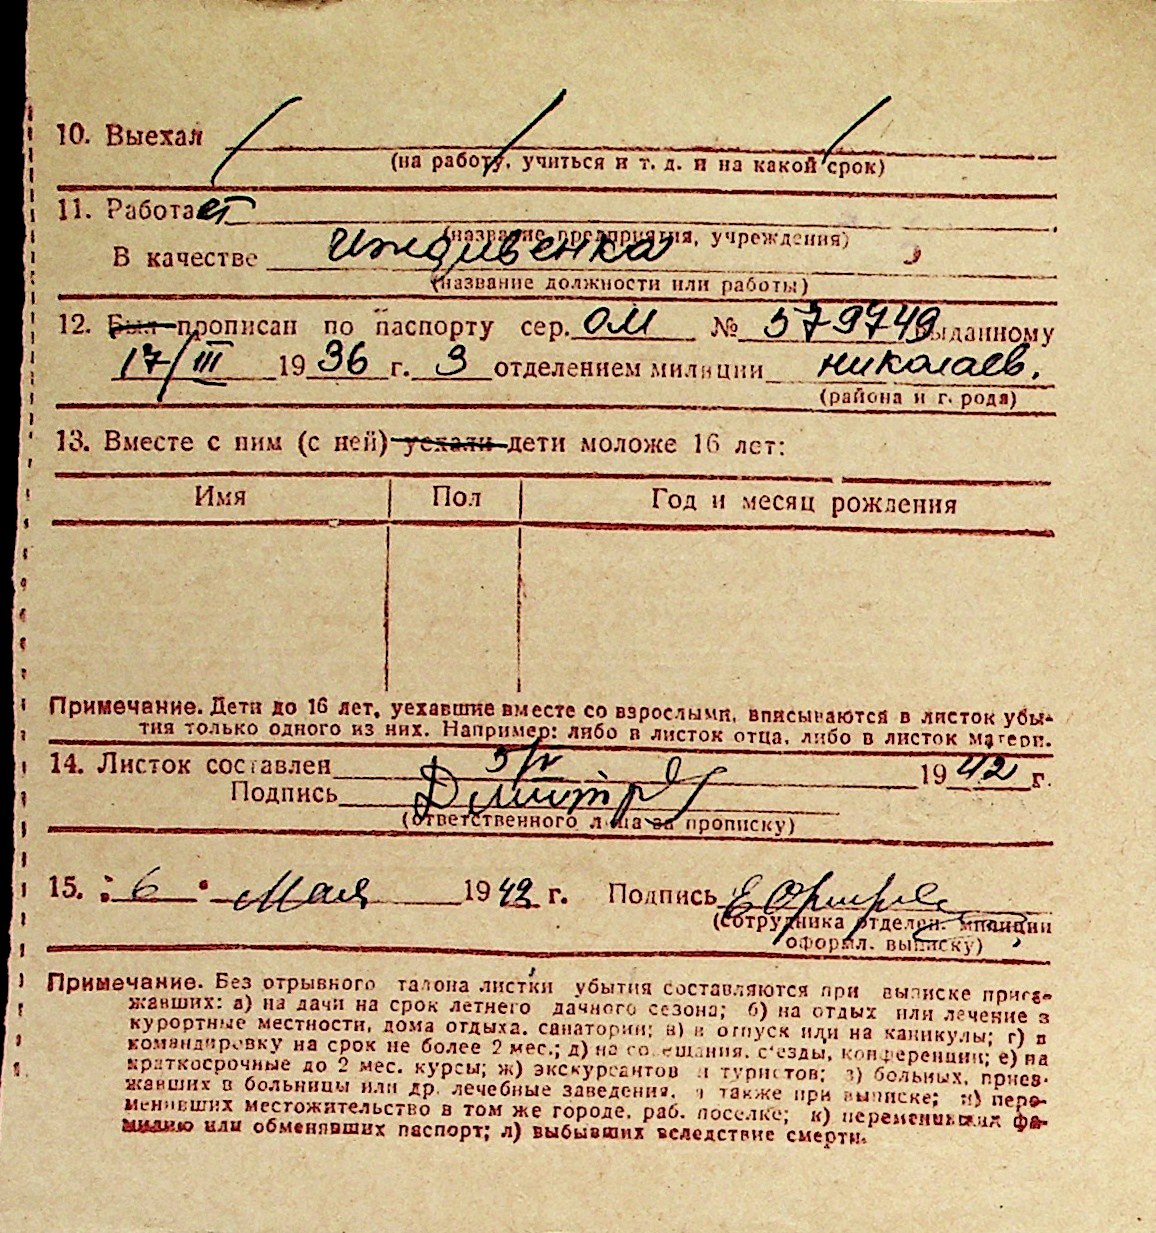 10. Выехал
(на работу, учиться и т. д. и на какой срок)
11. Работает
(название предприятия, учреждения)
В качестве иждивенка
(название должности или работы)
12. Был прописан по паспорту сер. ОМ № 579749 выданному
17/III 1936 г. 3 отделением милиции николаев.
(района и г. рода)
13. Вместе с ним (с ней) уехали дети моложе 16 лет:
Имя Пол Год и месяц рождения
Примечание. Дети до 16 лет, уехавшие вместе со взрослыми, вписываются в листок убы-
тия только одного из них. Например: либо в листок отца, либо в листок матери.
14. Листок составлен 5/V 1942 г.
Подпись
(ответственного лица за прописку)
15. „6" Мая 1942 г. Подпись
(сотрудника отделен. милиции
оформл. выписку)
Примечание. Без отрывного талона листки убытия составляются при выписке приез-
жавших: а) на дачи на срок летнего дачного сезона; б) на отдых или лечение в
курортные местности, дома отдыха, санатории; в) в отпуск или на каникулы; г) в
командировку на срок не более 2 мес.; д) на совещания, с'езды, конференции; е) на
краткосрочные до 2 мес. курсы; ж) экскурсантов и туристов; з) больных, приез-
жавших в больницы или др. лечебные заведения, а также при выписке; и) пере-
менивших местожительство в том же городе, раб. поселке; к) переменивших фа-
милию или обменявших паспорт; л) выбывших вследствие смерти.